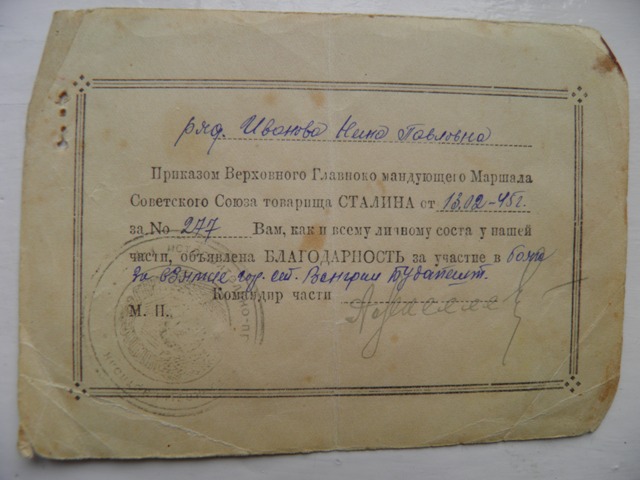 ряд. Иванова Нина Павловна
Приказом Верховного Главноко мандующего Маршала
Советского Союза товарища СТАЛИНА от 13.02-45г.
за No 277 Вам, как и всему личному соста у нашей
части, объявлена БЛАГОДАРНОСТЬ за участие в боях
за взятие гор. ст. Венгрии Будапешт.
Командир части
М. П.